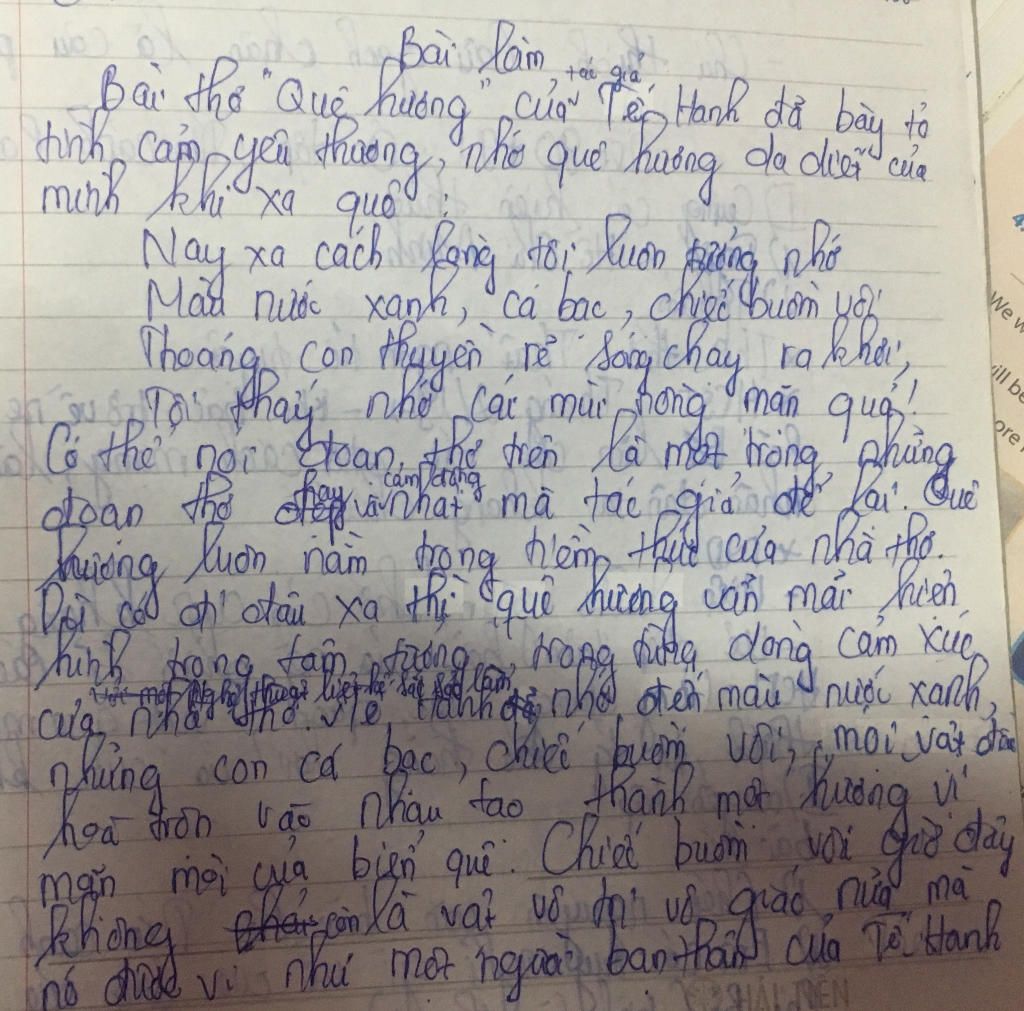 Bài làm
Bài thơ "Quê hương" của tác giả Tế Hanh đã bày tỏ
tình cảm yêu thương, nhớ quê hương da diết của
mình khi xa quê :
Nay xa cách lòng tôi luôn tưởng nhớ
Màu nước xanh, cá bạc, chiếc buồm vôi
Thoáng con thuyền rẽ sóng chạy ra khơi,
Tôi thấy nhớ cái mùi nồng mặn quá!
Có thể nói đoạn thơ trên là một trong những
đoạn thơ hay và cảm động nhất mà tác giả để lại. Quê
hương luôn nằm trong tiềm thức của nhà thơ.
Dù có đi đâu xa thì quê hương vẫn mãi hiện
hình trong tâm tưởng, trong từng dòng cảm xúc
của nhà thơ. Tế Hanh nhớ đến màu nước xanh,
những con cá bạc, chiếc buồm vôi, mọi vật đều
hoà trộn vào nhau tạo thành một hương vị
mặn mòi của biển quê. Chiếc buồm vôi giờ đây
không còn là vật vô tri vô giác nữa mà
nó được ví như một người bạn thân của Tế Hanh
We w
ill be
ore
HẢI TIẾN